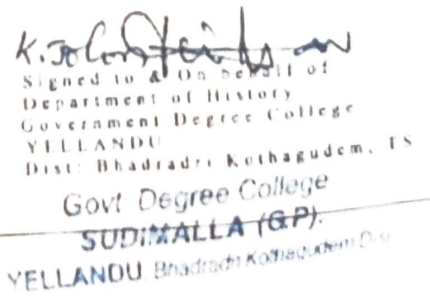 Signed to & On behalf of
Department of History
Government Degree College
YELLANDU
Dist: Bhadradri Kothagudem, TS
Govt Degree College
SUDIMALLA (GP).
YELLANDU Bhadradri Kothagudem Dist